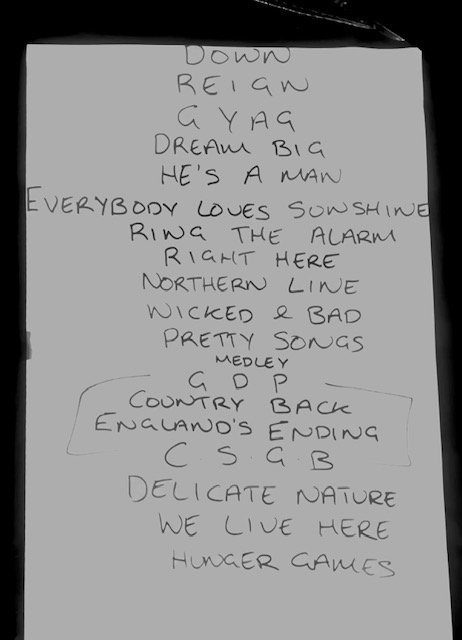 DOWN
REIGN
GYAG
DREAM BIG
HE'S A MAN
EVERYBODY LOVES SUNSHINE
RING THE ALARM
RIGHT HERE
NORTHERN LINE
WICKED & BAD
PRETTY SONGS
MEDLEY
G D P
COUNTRY BACK
ENGLAND'S ENDING
C.S.G.B
DELICATE NATURE
WE LIVE HERE
HUNGER GAMES